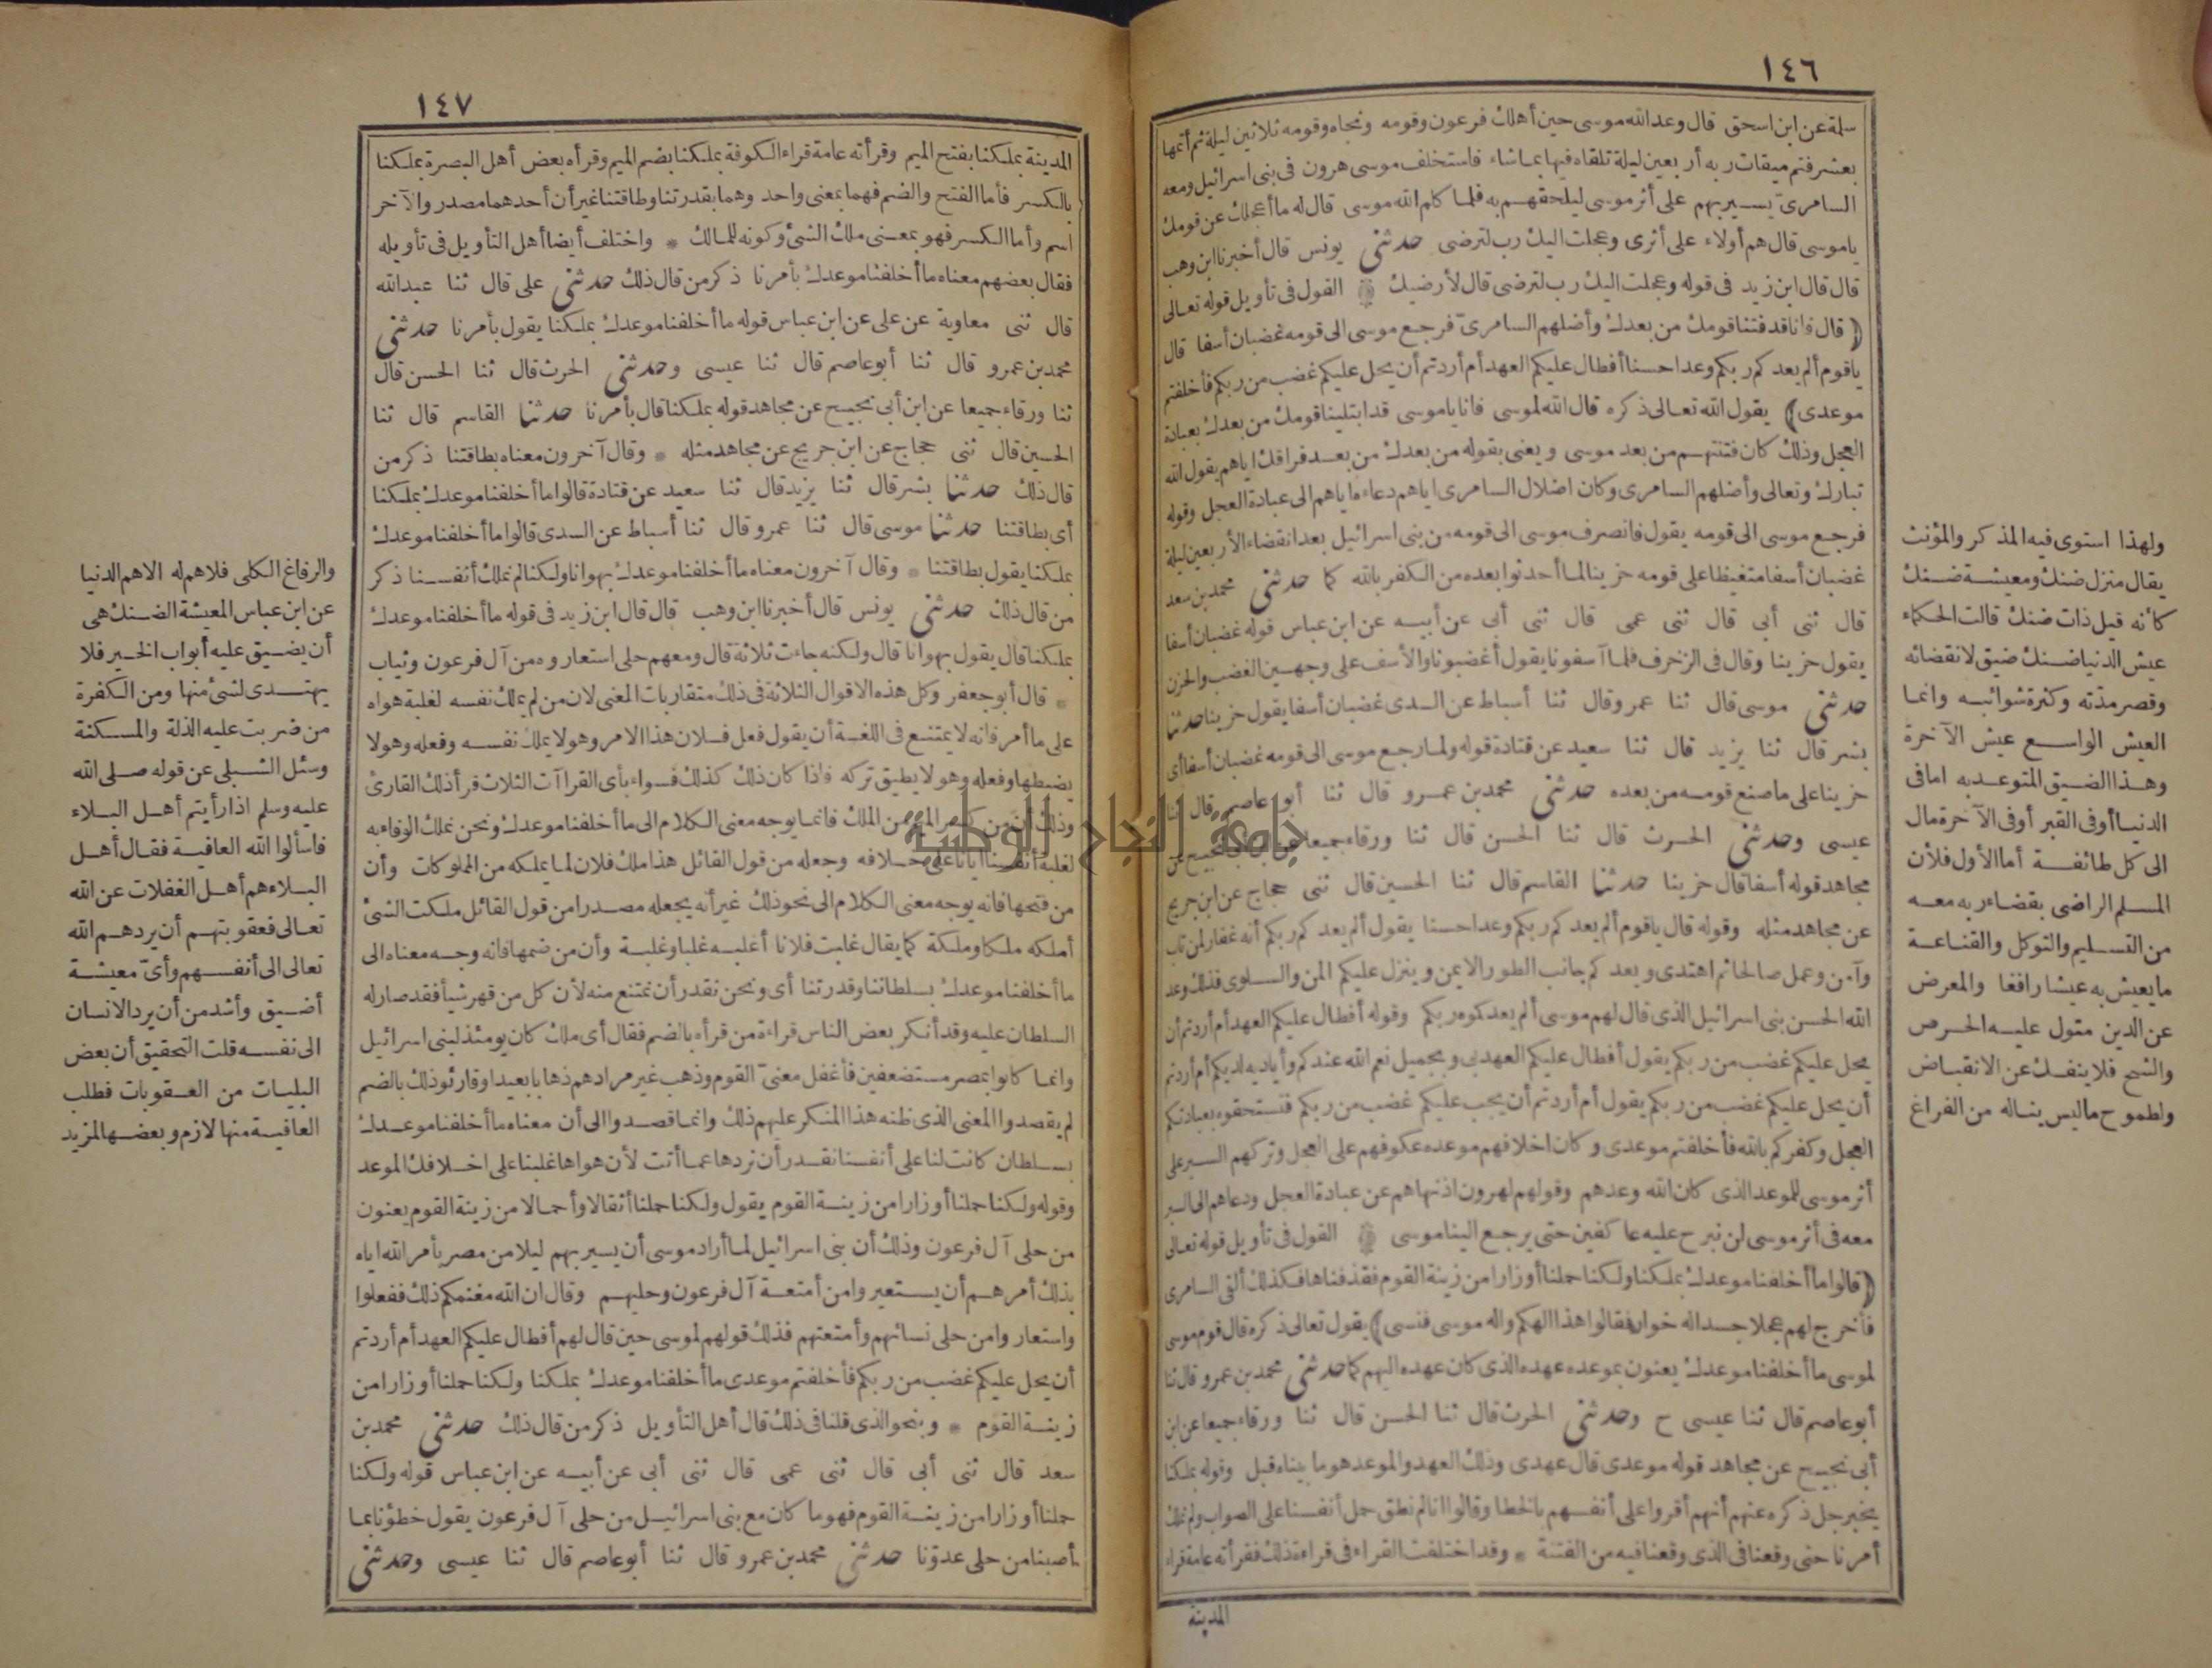 ١٤٦
سلمة عن ابن اسحق قال وعد الله موسى حين أهلك فرعون وقومه ونجاه وقومه ثلاثين ليلة ثم أتمها
بعشر فتم ميقات ربه أربعين ليلة تلقاه فيها بما شاء فاستخلف موسى هرون فى بنى اسرائيل ومعه
السامرىّ يسير بهم على أثر موسى ليلحقهم به فلما كلم الله موسى قال له ما أعجلك عن قومك
ياموسى قال هم أولاء على أثرى وعجلت اليك رب لترضى حدثنى يونس قال أخبرنا ابن وهب
قال قال ابن زيد فى قوله وعجلت اليك رب لترضى قال لأرضيك القول فى تأويل قوله تعالى
(قال فانا قد فتنا قومك من بعدك وأضلهم السامرىّ فرجع موسى الى قومه غضبان أسفا قال
ياقوم ألم يعدكم ربكم وعدا حسنا أفطال عليكم العهد أم أردتم أن يحل عليكم غضب من ربكم فأخلفتم
موعدى) يقول الله تعالى ذكره قال الله لموسى فانا ياموسى قد ابتلينا قومك من بعدك بعبادة
العجل وذلك كان فتنتهم من بعد موسى ويعنى بقوله من بعدك من بعد فراقك اياهم يقول الله
تبارك وتعالى وأضلهم السامرى وكان اضلال السامرى اياهم دعاءه اياهم الى عبادة العجل وقوله
فرجع موسى الى قومه يقول فانصرف موسى الى قومه من بنى اسرائيل بعد انقضاء الأربعين ليلة
غضبان أسفا متغيظا على قومه حزينا لما أحدثوا بعده من الكفر بالله كما حدثنى محمد بن سعد
قال ثنى أبى قال ثنى عمى قال ثنى أبى عن أبيه عن ابن عباس قوله غضبان أسفا
يقول حزينا وقال فى الزخرف فلما آسفونا يقول أغضبونا والأسف على وجهين الغضب والحزن
حدثنى موسى قال ثنا عمرو قال ثنا أسباط عن السدى غضبان أسفا يقول حزينا حدثنا
بشر قال ثنا يزيد قال ثنا سعيد عن قتادة قوله ولما رجع موسى الى قومه غضبان أسفا أى
حزينا على ما صنع قومه من بعده حدثنى محمد بن عمرو قال ثنا أبو عاصم قال ثنا
عيسى وحدثنى الحرث قال ثنا الحسن قال ثنا ورقاء جميعا عن ابن أبى نجيح عن
مجاهد قوله أسفا قال حزينا حدثنا القاسم قال ثنا الحسين قال ثنى حجاج عن ابن جريج
عن مجاهد مثله وقوله قال ياقوم ألم يعدكم ربكم وعدا حسنا يقول ألم يعدكم ربكم أنه غفار لمن تاب
وآمن وعمل صالحا ثم اهتدى ويعدكم جانب الطور الايمن وينزل عليكم المن والسلوى فذلك وعد
الله الحسن بنى اسرائيل الذى قال لهم موسى ألم يعدكموه ربكم وقوله أفطال عليكم العهد أم أردتم أن
يحل عليكم غضب من ربكم يقول أفطال عليكم العهد بى وبجميل نعم الله عندكم وأياديه لديكم أم أردتم
أن يحل عليكم غضب من ربكم يقول أم أردتم أن يجب عليكم غضب من ربكم فتستحقوه بعبادتكم
العجل وكفركم بالله فأخلفتم موعدى وكان اخلافهم موعده عكوفهم على العجل وتركهم السير على
أثر موسى للموعد الذى كان الله وعدهم وقولهم لهرون اذ نهاهم عن عبادة العجل ودعاهم الى السير
معه فى أثر موسى لن نبرح عليه عاكفين حتى يرجع الينا موسى القول فى تأويل قوله تعالى
(قالوا ما أخلفنا موعدك بملكنا ولكنا حملنا أوزارا من زينة القوم فقذفناها فكذلك ألقى السامرى
فأخرج لهم عجلا جسدا له خوار فقالوا هذا الهكم واله موسى فنسى) يقول تعالى ذكره قال قوم موسى
لموسى ما أخلفنا موعدك يعنون بموعده عهده الذى كان عهده اليهم كما حدثنى محمد بن عمرو قال ثنا
أبو عاصم قال ثنا عيسى ح وحدثنى الحرث قال ثنا الحسن قال ثنا ورقاء جميعا عن ابن
أبى نجيح عن مجاهد قوله موعدى قال عهدى وذلك العهد والموعد هو ما بيناه قبل وقوله بملكنا
يخبر جل ذكره عنهم أنهم أقروا على أنفسهم بالخطا وقالوا انا لم نطق حمل أنفسنا على الصواب ولم نملك
أمرنا حتى وقعنا فى الذى وقعنا فيه من الفتنة * وقد اختلفت القراء فى قراءة ذلك فقرأته عامة قراء
المدينة
ولهذا استوى فيه المذكر والمؤنث
يقال منزل ضنك ومعيشة ضنك
كأنه قيل ذات ضنك قالت الحكماء
عيش الدنيا ضنك ضيق لانقضائه
وقصر مدّته وكثرة شوائبه وانما
العيش الواسع عيش الآخرة
وهذا الضيق المتوعد به اما فى
الدنيا أو فى القبر أو فى الآخرة مال
الى كل طائفة أما الأول فلأن
المسلم الراضى بقضاء ربه معه
من التسليم والتوكل والقناعة
ما يعيش به عيشا رافغا والمعرض
عن الدين متول عليه الحرص
والشح فلا ينفك عن الانقباض
ولطموح ما ليس يناله من الفراغ
١٤٧
المدينة بملكنا بفتح الميم وقرأته عامة قراء الكوفة بملكنا بضم الميم وقرأه بعض أهل البصرة بملكنا
بالكسر فأما الفتح والضم فهما بمعنى واحد وهما بقدرتنا وطاقتنا غير أن أحدهما مصدر والآخر
اسم وأما الكسر فهو بمعنى ملك الشئ وكونه للمالك * واختلف أيضا أهل التأويل فى تأويله
فقال بعضهم معناه ما أخلفنا موعدك بأمرنا ذكر من قال ذلك حدثنى على قال ثنا عبد الله
قال ثنى معاوية عن على عن ابن عباس قوله ما أخلفنا موعدك بملكنا يقول بأمرنا حدثنى
محمد بن عمرو قال ثنا أبو عاصم قال ثنا عيسى وحدثنى الحرث قال ثنا الحسن قال
ثنا ورقاء جميعا عن ابن أبى نجيح عن مجاهد قوله بملكنا قال بأمرنا حدثنا القاسم قال ثنا
الحسين قال ثنى حجاج عن ابن جريج عن مجاهد مثله * وقال آخرون معناه بطاقتنا ذكر من
قال ذلك حدثنا بشر قال ثنا يزيد قال ثنا سعيد عن قتادة قالوا ما أخلفنا موعدك بملكنا
أى بطاقتنا حدثنا موسى قال ثنا عمرو قال ثنا أسباط عن السدى قالوا ما أخلفنا موعدك
بملكنا يقول بطاقتنا * وقال آخرون معناه ما أخلفنا موعدك بهوانا ولكنا لم نملك أنفسنا ذكر
من قال ذلك حدثنى يونس قال أخبرنا ابن وهب قال قال ابن زيد فى قوله ما أخلفنا موعدك
بملكنا قال يقول بهوانا قال ولكنه جاءت ثلاثة قال ومعهم حلى استعاروه من آل فرعون وثياب
* قال أبو جعفر وكل هذه الاقوال الثلاثة فى ذلك متقاربات المعنى لان من لم يملك نفسه لغلبة هواه
على ما أمر فانه لا يمتنع فى اللغة أن يقول فعل فلان هذا الامر وهو لا يملك نفسه وفعله وهو لا
يضبطها وفعله وهو لا يطيق تركه فاذا كان ذلك كذلك فسواء بأى القراآت الثلاث قرأ ذلك القارئ
وذلك أن من كسر الميم من الملك فانما يوجه معنى الكلام الى ما أخلفنا موعدك ونحن نملك الوفاء به
لغلبة أنفسنا ايانا على خلافه وجعله من قول القائل هذا ملك فلان لما يملكه من المملوكات وأن
من فتحها فانه يوجه معنى الكلام الى نحو ذلك غير أنه يجعله مصدرا من قول القائل ملكت الشئ
أملكه ملكا وملكة كما يقال غلبت فلانا أغلبه غلبا وغلبة وأن من ضمها فانه وجه معناه الى
ما أخلفنا موعدك بسلطاننا وقدرتنا أى ونحن نقدر أن نمتنع منه لأن كل من قهر شيأ فقد صار له
السلطان عليه وقد أنكر بعض الناس قراءة من قرأه بالضم فقال أى ملك كان يومئذ لبنى اسرائيل
وانما كانوا بمصر مستضعفين فأغفل معنىّ القوم وذهب غير مرادهم ذهابا بعيدا وقارئو ذلك بالضم
لم يقصدوا المعنى الذى ظنه هذا المنكر عليهم ذلك وانما قصدوا الى أن معناه ما أخلفنا موعدك
بسلطان كانت لنا على أنفسنا نقدر أن نردها عما أتت لأن هواها غلبنا على اخلافك الموعد
وقوله ولكنا حملنا أوزارا من زينة القوم يقول ولكنا حملنا أثقالا وأحمالا من زينة القوم يعنون
من حلى آل فرعون وذلك أن بنى اسرائيل لما أراد موسى أن يسير بهم ليلا من مصر بأمر الله اياه
بذلك أمرهم أن يستعيروا من أمتعة آل فرعون وحليهم وقال ان الله مغنمكم ذلك ففعلوا
واستعاروا من حلى نسائهم وأمتعتهم فذلك قولهم لموسى حين قال لهم أفطال عليكم العهد أم أردتم
أن يحل عليكم غضب من ربكم فأخلفتم موعدى ما أخلفنا موعدك بملكنا ولكنا حملنا أوزارا من
زينة القوم * وبنحو الذى قلنا فى ذلك قال أهل التأويل ذكر من قال ذلك حدثنى محمد بن
سعد قال ثنى أبى قال ثنى عمى قال ثنى أبى عن أبيه عن ابن عباس قوله ولكنا
حملنا أوزارا من زينة القوم فهو ما كان مع بنى اسرائيل من حلى آل فرعون يقول خطؤنا بما
أصبنا من حلى عدوّنا حدثنى محمد بن عمرو قال ثنا أبو عاصم قال ثنا عيسى وحدثنى
والرفاغ الكلى فلا هم له الا هم الدنيا
عن ابن عباس المعيشة الضنك هى
أن يضيق عليه أبواب الخير فلا
يهتدى لشئ منها ومن الكفرة
من ضربت عليه الذلة والمسكنة
وسئل الشبلى عن قوله صلى الله
عليه وسلم اذا رأيتم أهل البلاء
فاسألوا الله العافية فقال أهل
البلاء هم أهل الغفلات عن الله
تعالى فعقوبتهم أن يردهم الله
تعالى الى أنفسهم وأىّ معيشة
أضيق وأشد من أن يرد الانسان
الى نفسه قلت التحقيق أن بعض
البليات من العقوبات فطلب
العافية منها لازم وبعضها لمزيد
جامعة النجاح الوطنية